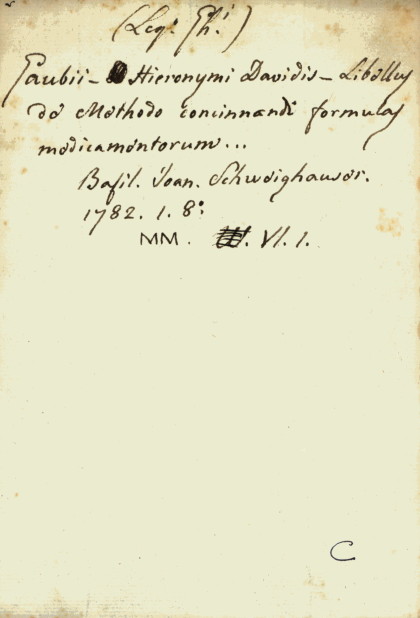 (Leg: Ph:)
Gaubii - Hieronymi Davidis - Libellus
de Methodo concinnandi formulas
medicamentorum...
Basil. Joan. Schweighauser.
1782. 1. 8:
MM. VI. 1.
C